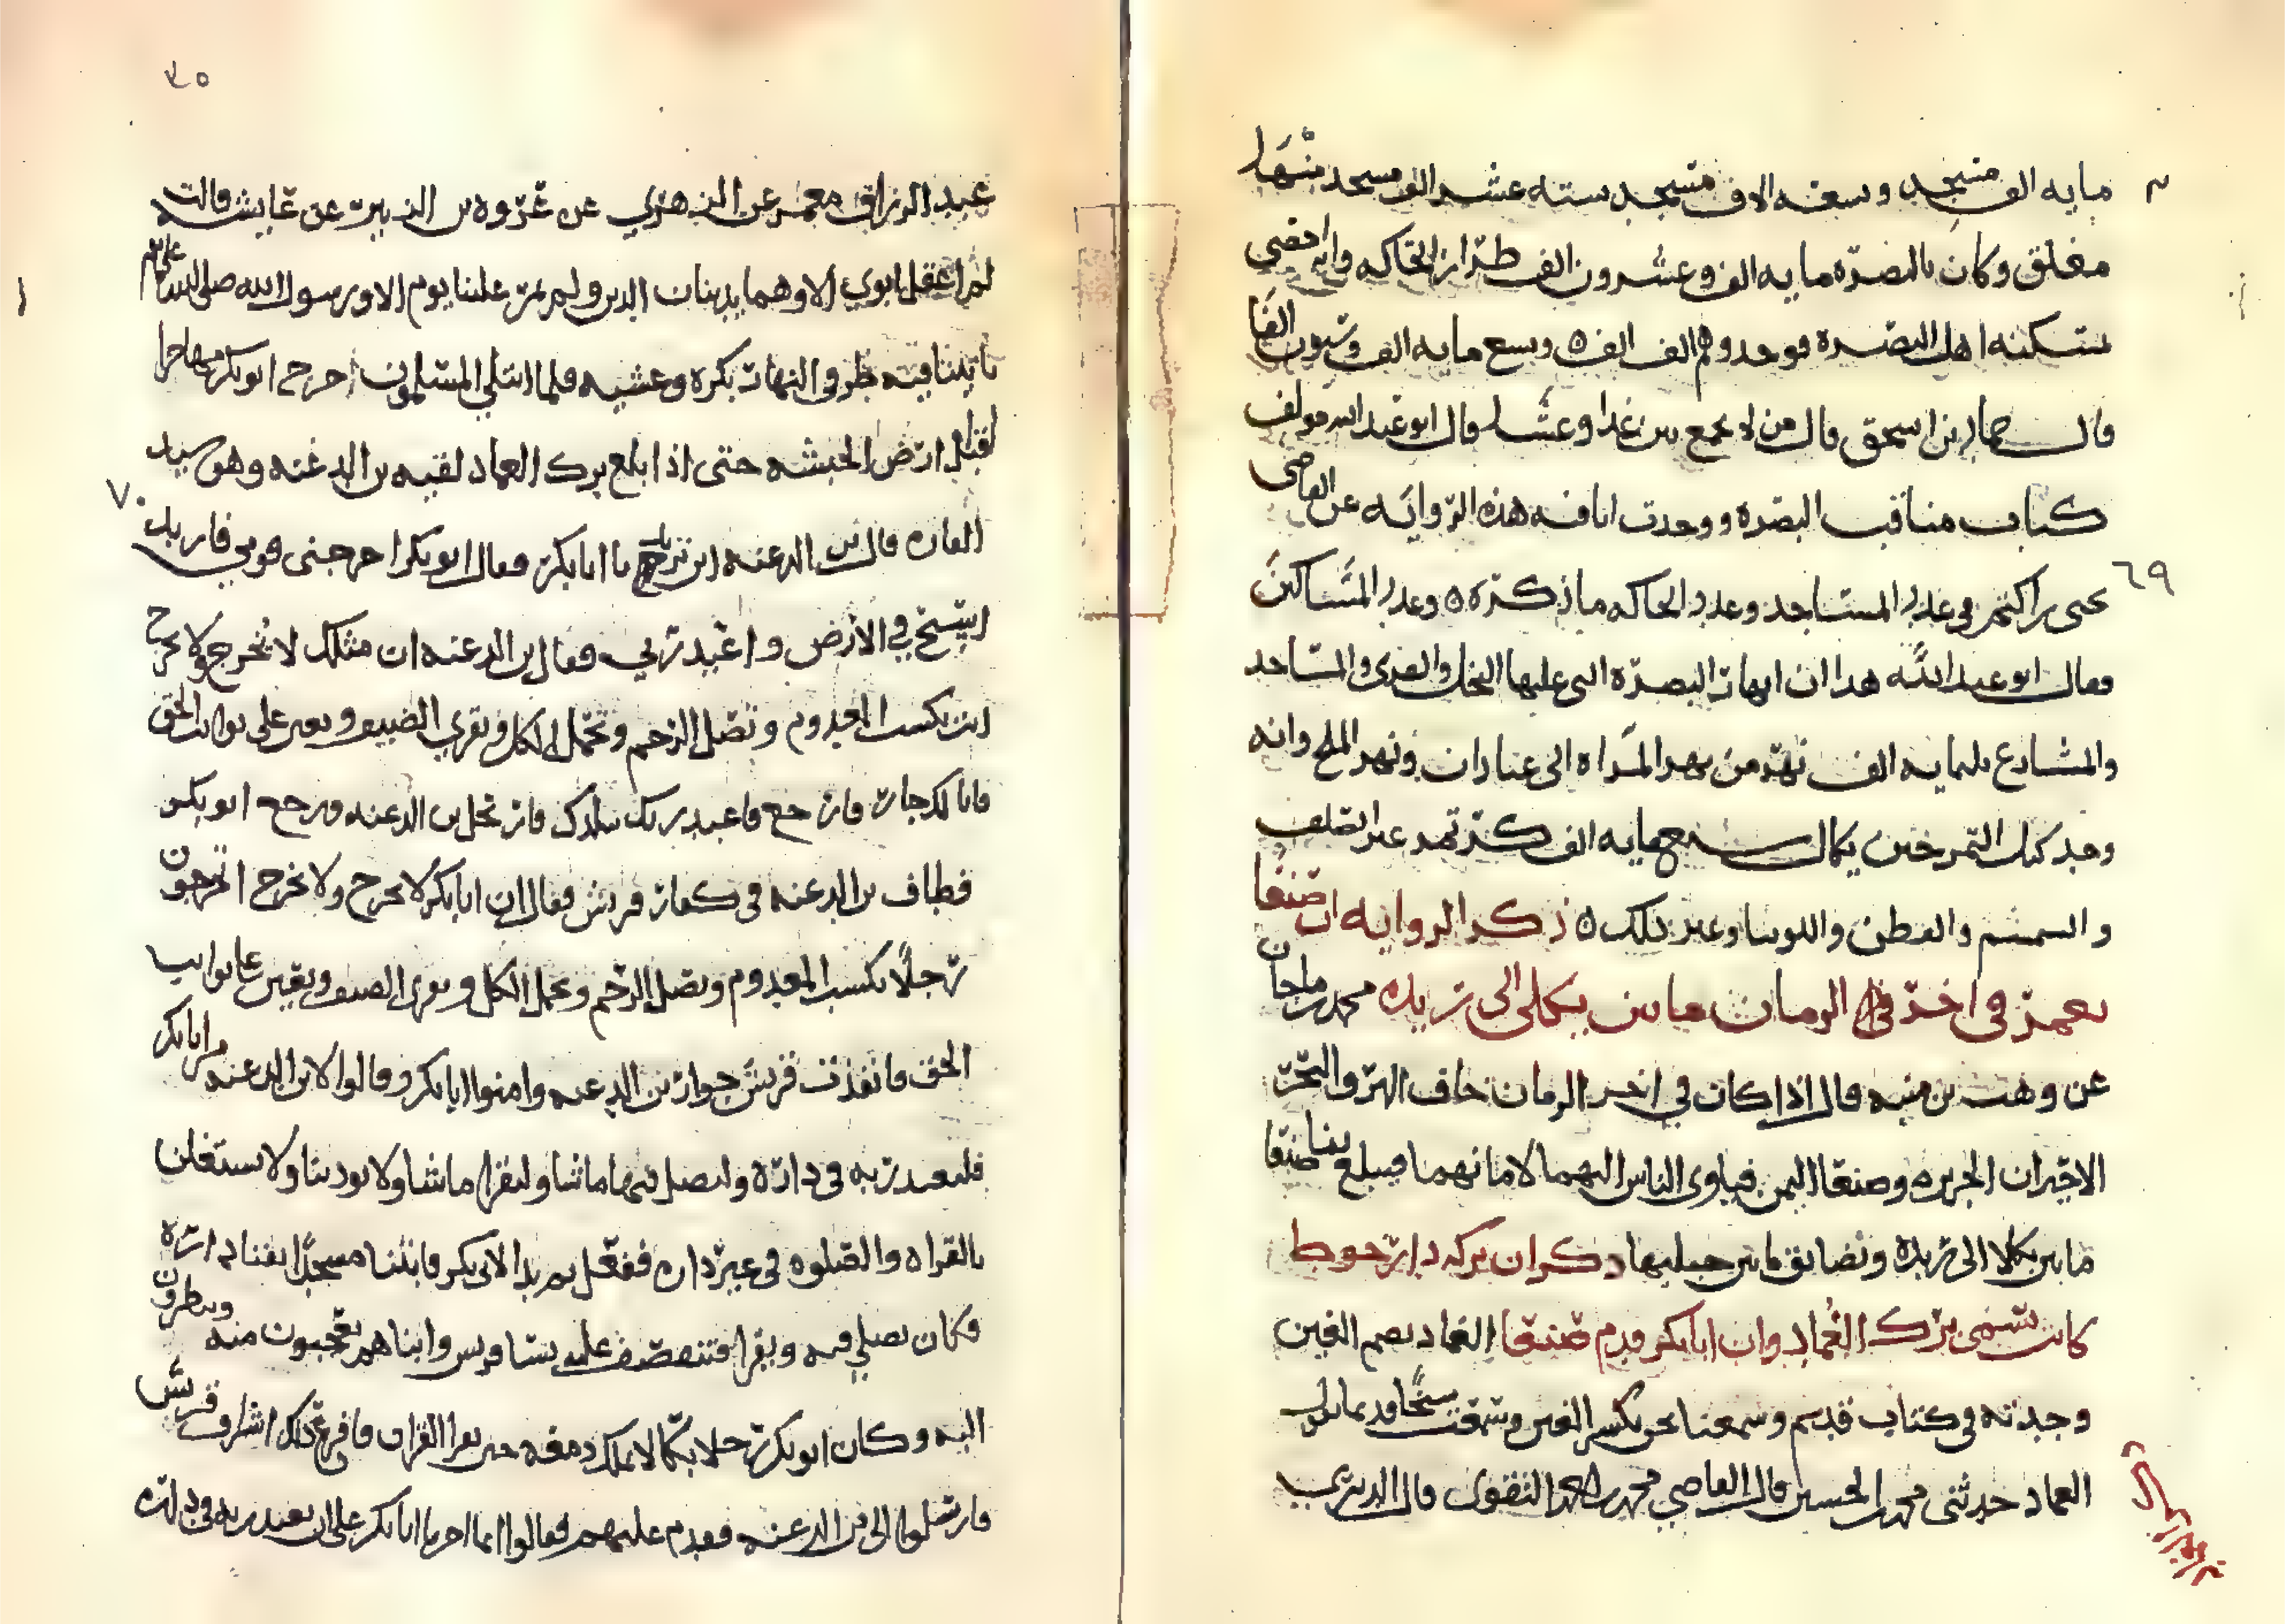 مايه الف مسجد وسبعه الاف مسجد سته عشر الف مسجد منها
مغلق وكان بالبصره مايه الف وعشرون الف طراز للحاكه وانه احصي
اهل البصره فوجدوهم الف الف وسبع مايه الف الفا
قال حماد بن اسحق قال من لا يجمع بين غدا وعشا قال ابو عبد الله مولف
كتاب مناقب البصره ووجدت انا فيه هذه الروايه عن القاضي
يحيى بن اكثم في عدد المساجد وعدد الحاكه ما ذكره وعدد المساكين
فقال ابو عبد الله هذا ان انهار البصره التي عليها النخل والقرى والمساجد
والمشارع ثلثمايه الف نهر من نهر المراه الى عبادان ونهر الملح وانه
وجد كيل التمر حين يكال سبع مايه الف كر تمر غير العلف
والسمسم والقطن واللوبيا وغير ذلك ذكر الروايه ان صنعا
تعمر في اخر الزمان ما بين يكلى الى زيده محمد بن ماجان
عن وهب بن منبه قال اذا كان في اخر الزمان خاف البر والبحر
الا حران الجزيره وصنعا اليمن فياوي الناس اليهما لامانهما فيبلغ بنا صنعا
ما بين يكلا الى زيده وتضايق ما بين جبليها ذكر ان بركه دار حوط
كانت تسمى برك الغماد وان ابا بكر قدم صنعا الغماد بضم الغين
وجدته في كتاب قديم وسمعنا نحن بكسر الغين وسمعت شيخا قديما يقول
الغماد حدثني محمد بن الحسين قال القاضي محمد بن احمد النقوي قال الدبري
٤٥
عبد الرزاق معمر عن الزهري عن عروه بن الزبير عن عايشه قالت
لم اعقل ابوي الا وهما يدينان الدين ولم يمر علينا يوم الا ورسول الله صلى الله عليه وسلم
ياتينا فيه طرفي النهار بكره وعشيه فلما ابتلي المسلمون خرج ابو بكر مهاجرا
قبل ارض الحبشه حتى اذا بلغ برك الغماد لقيه بن الدغنه وهو سيد
القاره قال بن الدغنه اين تريد يا ابا بكر فقال ابو بكر اخرجني قومي فاريد
اسيح في الارض واعبد ربي فقال بن الدغنه ان مثلك لا يخرج ولا يخرج
انت تكسب المعدوم وتصل الرحم وتحمل الكل وتقري الضيف وتعين على نوايب الحق
فانا لك جار فارجع فاعبد ربك ببلدك فارتحل بن الدغنه ورجع ابو بكر
فطاف بن الدغنه في كفار قريش فقال ان ابا بكر لا يخرج ولا يخرج اتخرجون
رجلا يكسب المعدوم ويصل الرحم ويحمل الكل ويقري الضيف ويعين على نوايب
الحق فانفذت قريش جوار بن الدغنه وامنوا ابا بكر وقالوا لابن الدغنه مر ابا بكر
فليعبد ربه في داره وليصل فيها ما شا وليقرا ما شا ولا يوذينا ولا يستعلن
بالقراه والصلوه في غير داره ففعل ثم بدا لابي بكر فابتنا مسجدا بفنا داره
وكان يصلي فيه ويقرا فتتقصف عليه نسا قريش وابناهم يعجبون منه وينظرون
اليه وكان ابو بكر رجلا بكا لا يملك دمعه حين يقرا القران فافزع ذلك اشراف قريش
فارسلوا الى بن الدغنه فقدم عليهم فقالوا انما اجرنا ابا بكر على ان يعبد ربه في داره
٦٩
٧٠